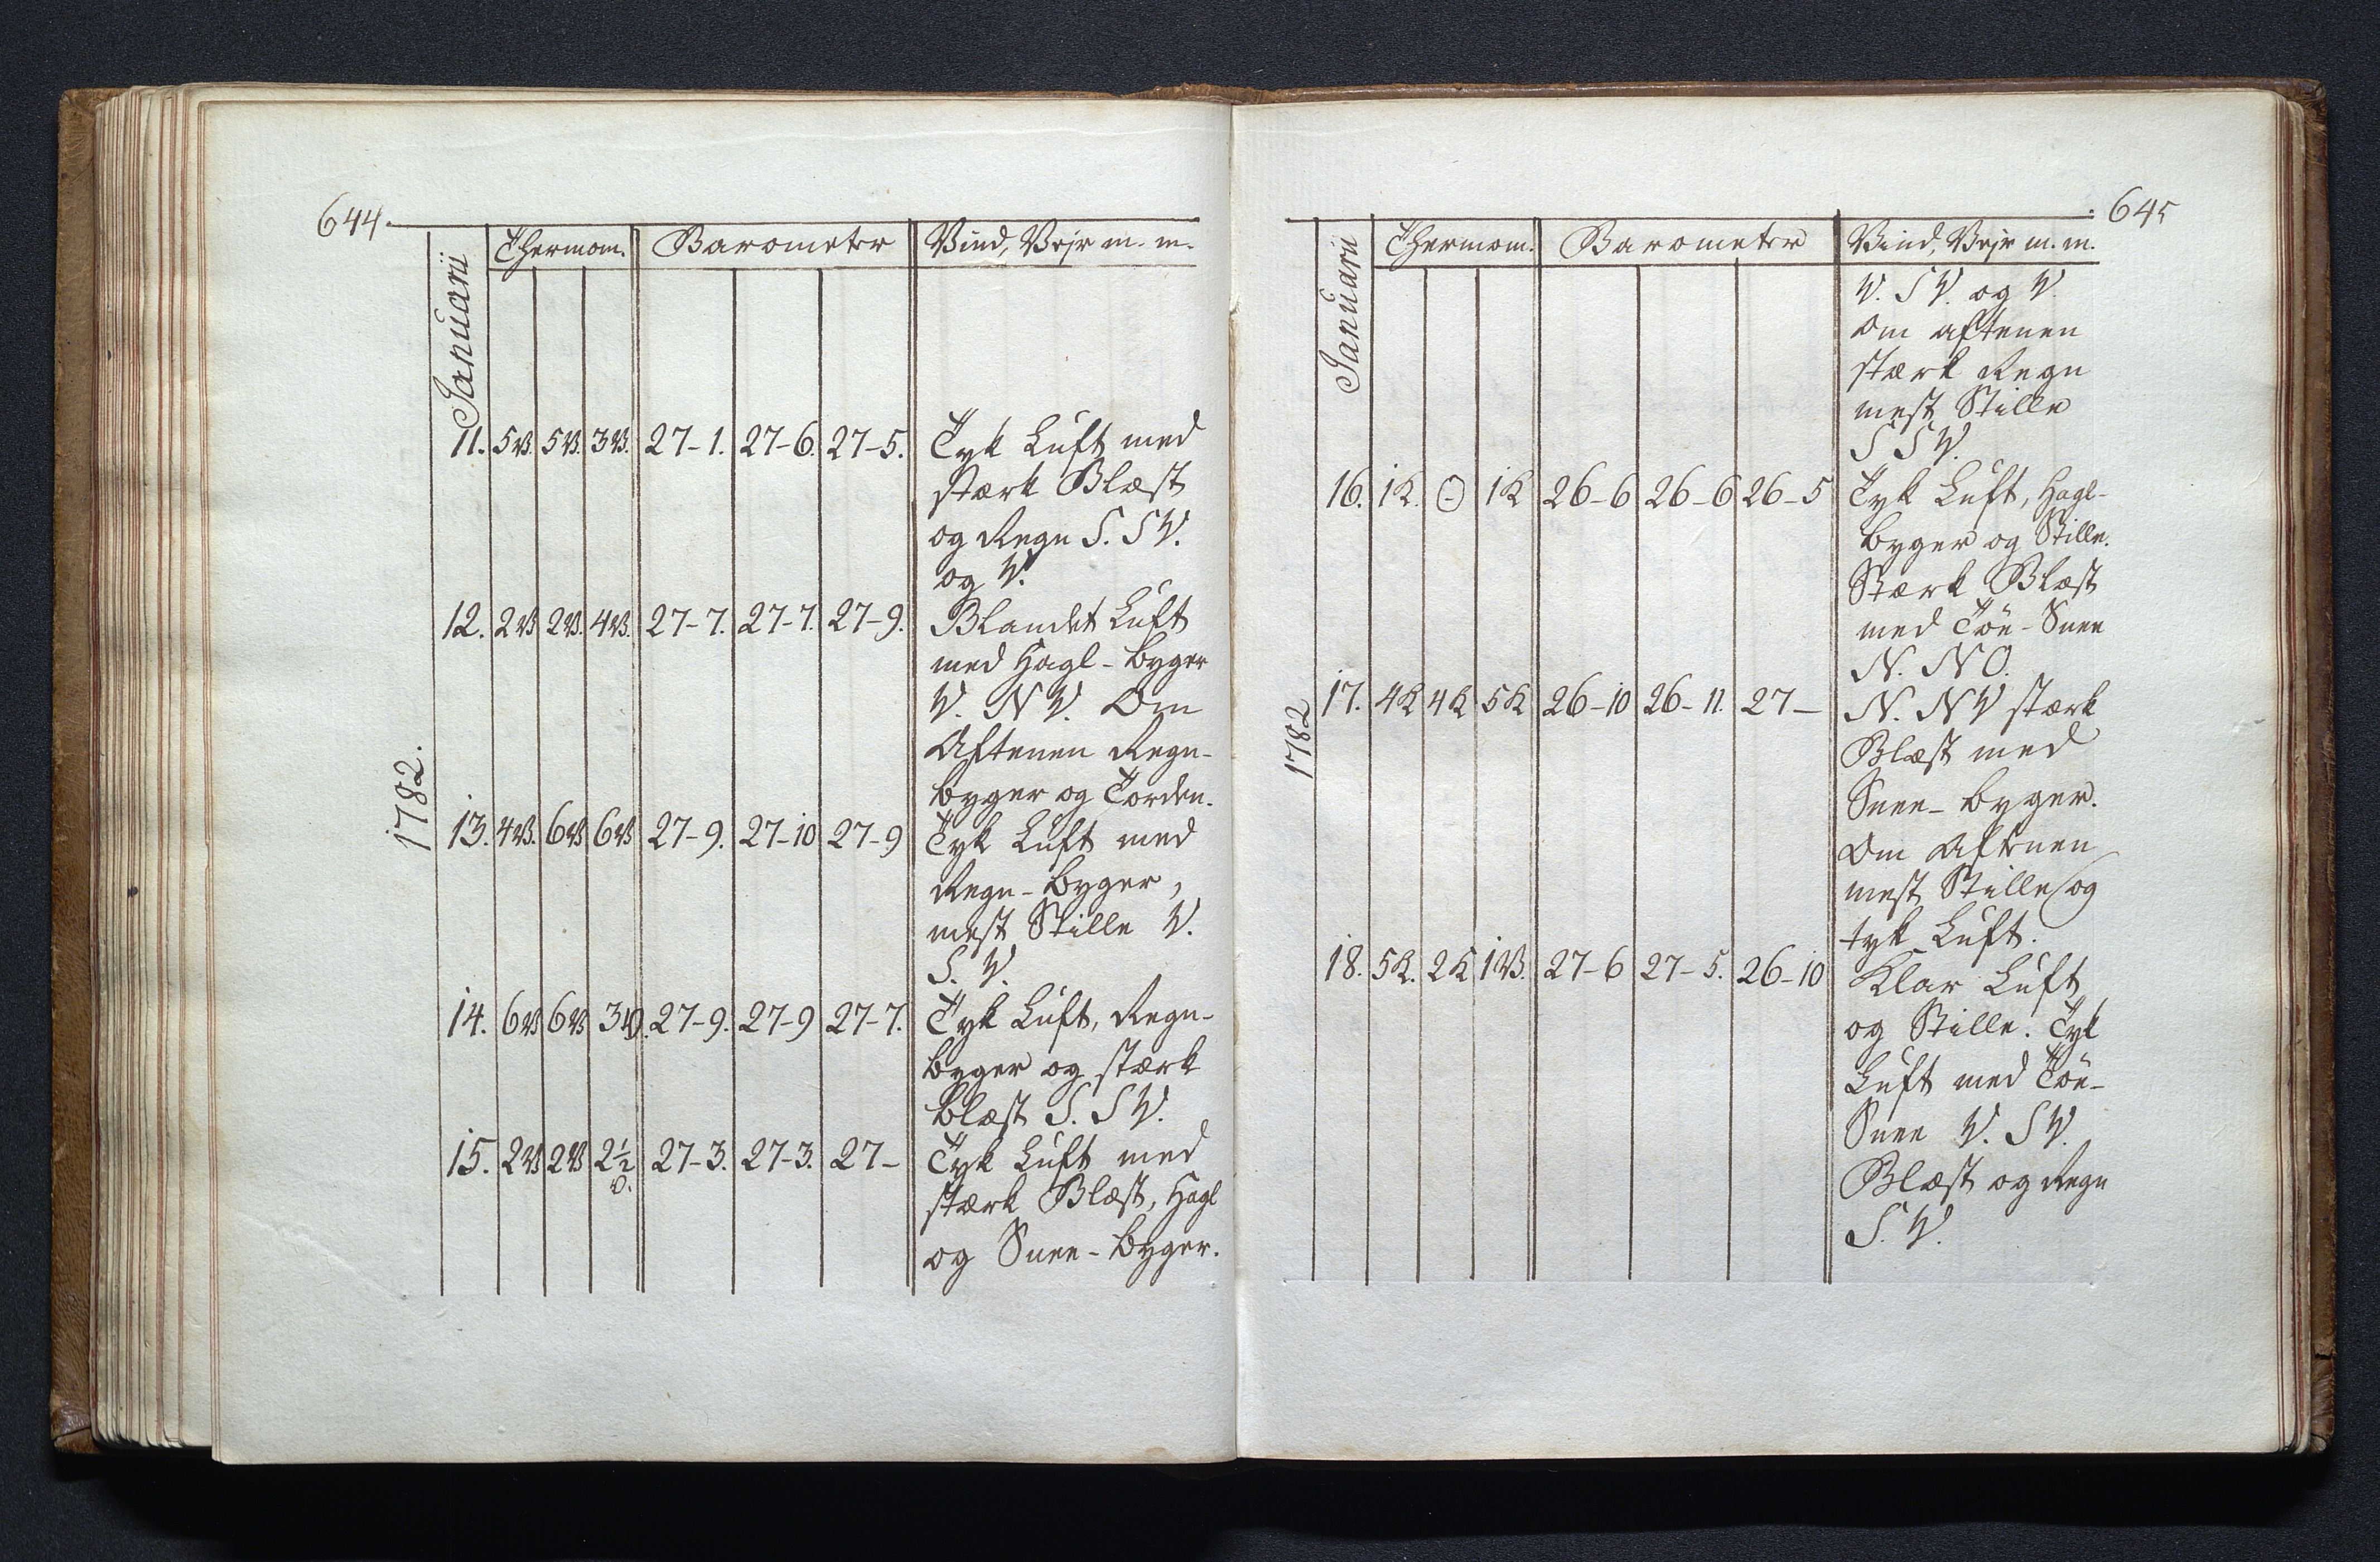 644.
Januarii
Thermom. Barometer Vind, Vejr m. m.
1782.
11. 5V. 5V. 3V. 27-1. 27-6. 27-5. Tyk Luft med
stærk Blæst
og Regn S. SV.
og V.
12. 2V 2V. 4V. 27-7. 27-7. 27-9. Blandet Luft
med Hagl-byger
V. NV. Om
Aftenen Regn-
byger og Torden.
13. 4V. 6V 6V 27-9. 27-10 27-9 Tyk Luft med
Regn-byger,
mest Stille V.
S. V.
14. 6V 6V 3V. 27-9. 27-9 27-7. Tyk Luft, Regn-
byger og stærk
blæst S. SV.
15. 2V 2V 2½ V. 27-3. 27-3. 27- Tyk Luft med
stærk Blæst, Hagl
og Snee-byger.
645
Januarii
Thermom. Barometer Vind, Vejr m. m.
1782
V. SV. og V.
om aftenen
stærk Regn
mest Stille
S SV.
16. 1K. 0 1K 26-6 26-6 26-5 Tyk Luft, Hagl-
byger og Stille.
Stærk Blæst
med Töe-Snee
N. NO.
17. 4K 4K 5K 26-10 26-11. 27- N. NV stærk
Blæst med
Snee-byger.
Om Aftenen
mest Stille og
tyk Luft.
18. 5K. 2K 1V. 27-6 27-5. 26-10 Klar Luft
og Stille. Tyk
Luft med Töe-
Snee V. SV.
Blæst og Regn
S. V.